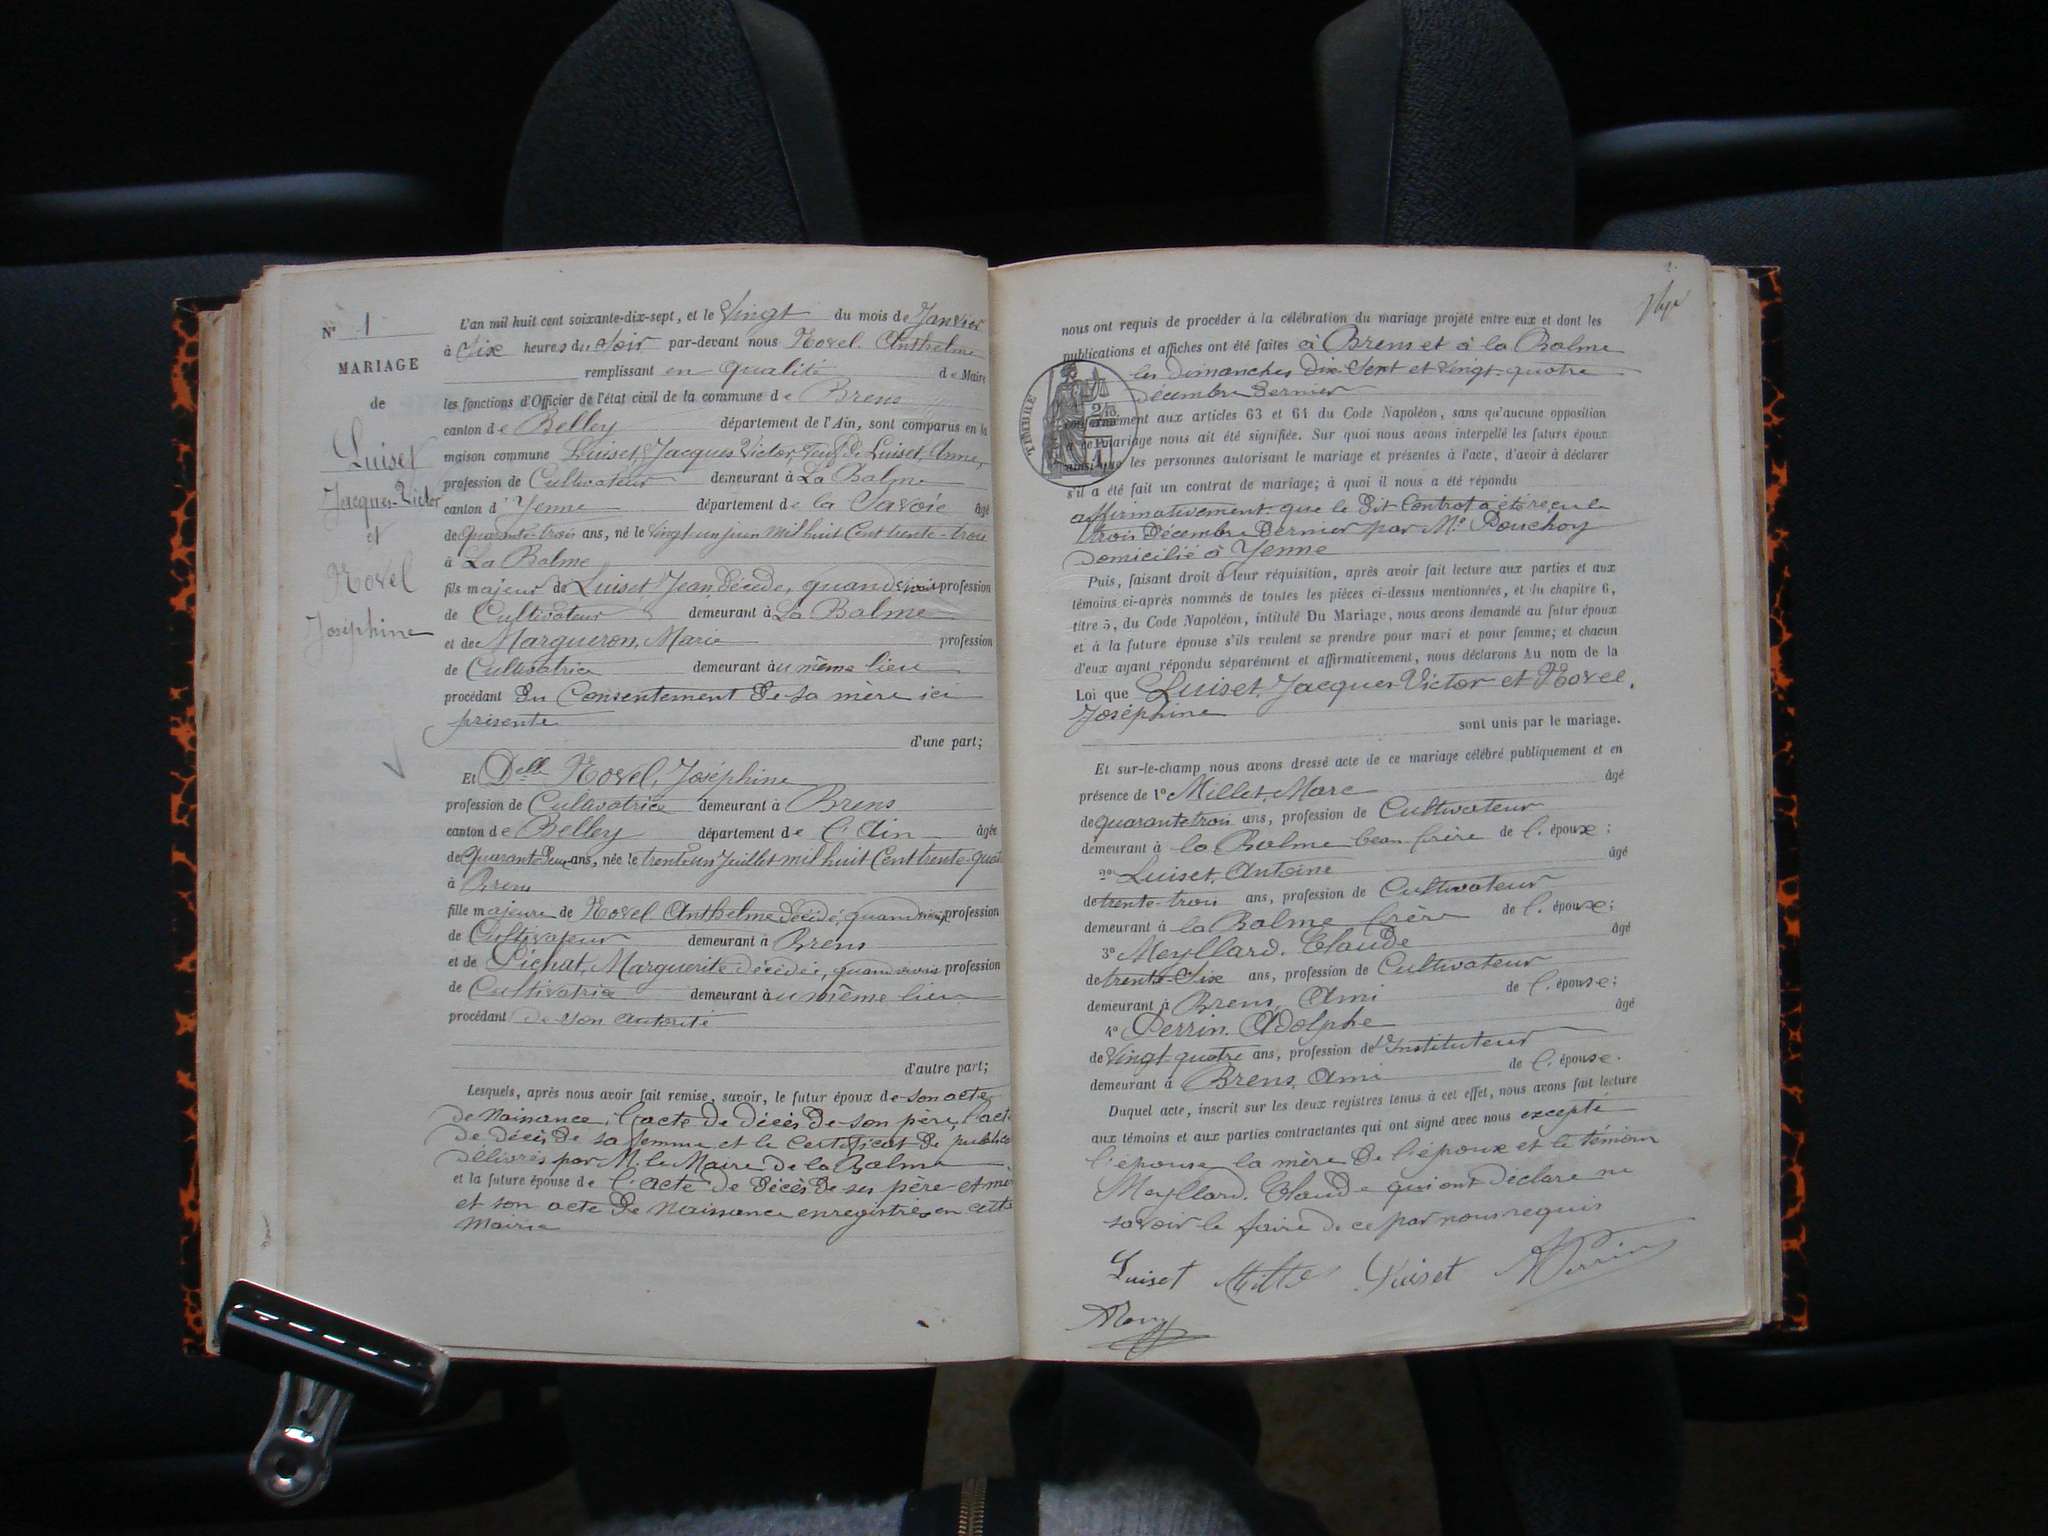 N° 1
MARIAGE
de
Luiset
Jacques-Victor
et
Rovel
Joséphine
L'an mil huit cent soixante-dix-sept, et le Vingt du mois de Janvier
à Six heures du Soir par-devant nous Rovel Anthelme
remplissant en qualité de Maire
les fonctions d'Officier de l'état civil de la commune de Brens
canton de Belley département de l'Ain, sont comparus en la
maison commune Luiset, Jacques Victor, Veuf de Luiset, Anne,
profession de Cultivateur demeurant à La Balme
canton d'Yenne département de la Savoie âgé
de Quarante-trois ans, né le vingt-un juin mil huit Cent trente-trois
à La Balme
fils majeur de Luiset Jean décédé, quand vivait profession
de Cultivateur demeurant à La Balme
et de Margueron, Marie profession
de Cultivatrice demeurant au même lieu
procédant Du Consentement de sa mère ici
présente
d'une part;
Et Delle Rovel, Joséphine
profession de Cultivatrice demeurant à Brens
canton de Belley département de l'Ain âgée
de Quarante Deux ans, née le trente un Juillet mil huit Cent trente-quatre
à Brens
fille majeure de Rovel Anthelme décédé, quand vivait profession
de Cultivateur demeurant à Brens
et de Pichat, Marguerite décédée, quand vivait profession
de Cultivatrice demeurant au même lieu
procédant de son autorité
d'autre part;
Lesquels, après nous avoir fait remise, savoir, le futur époux de son acte
de Naissance, l'acte de décès de son père, l'acte
de décès de sa femme et le Certificat de
délivrés par M. le Maire de la Balme
et la future épouse de l'acte de décès de ses père et mère
et son acte de Naissance enregistrés en cette
Mairie
2
nous ont requis de procéder à la célébration du mariage projeté entre eux et dont les
publications et affiches ont été faites à Brens et à la Balme
les Dimanches Dix Sept et Vingt-quatre
décembre Dernier
TIMBRE
conformément aux articles 63 et 64 du Code Napoléon, sans qu'aucune opposition
à ce mariage nous ait été signifiée. Sur quoi nous avons interpellé les futurs époux
ainsi que les personnes autorisant le mariage et présentes à l'acte, d'avoir à déclarer
s'il a été fait un contrat de mariage; à quoi il nous a été répondu
affirmativement que le Dit Contrat a été reçu le
trois Décembre Dernier par Me Pouchoy
Domicilié à Yenne
Puis, faisant droit à leur réquisition, après avoir fait lecture aux parties et aux
témoins ci-après nommés de toutes les pièces ci-dessus mentionnées, et du chapitre 6,
titre 5, du Code Napoléon, intitulé Du Mariage, nous avons demandé au futur époux
et à la future épouse s'ils veulent se prendre pour mari et pour femme; et chacun
d'eux ayant répondu séparément et affirmativement, nous déclarons Au nom de la
Loi que Luiset, Jacques Victor et Rovel,
Joséphine
sont unis par le mariage.
Et sur-le-champ nous avons dressé acte de ce mariage célébré publiquement et en
présence de 1° Millet, Marc âgé
de quarante trois ans, profession de Cultivateur
demeurant à la Balme beau frère de l'époux;
2° Luiset, Antoine âgé
de trente-trois ans, profession de Cultivateur
demeurant à la Balme frère de l'époux;
3° Meyllard, Claude âgé
de trente-Six ans, profession de Cultivateur
demeurant à Brens, Ami de l'épouse;
4° Perrin, Adolphe âgé
de Vingt-quatre ans, profession d'Instituteur
demeurant à Brens, Ami de l'épouse.
Duquel acte, inscrit sur les deux registres tenus à cet effet, nous avons fait lecture
aux témoins et aux parties contractantes qui ont signé avec nous excepté
l'épouse la mère de l'époux et le témoin
Meyllard, Claude qui ont déclaré ne
savoir le faire de ce par nous requis
Luiset Millet Luiset APerrin